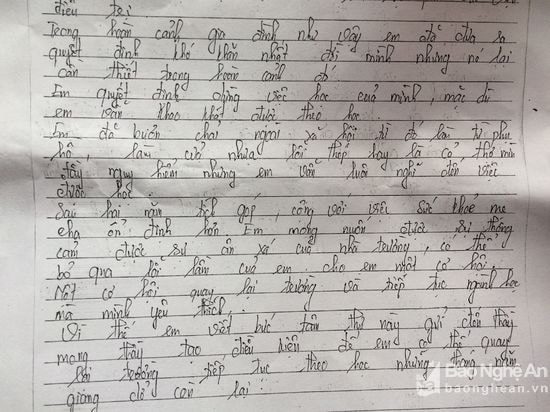 điều trị
Trong hoàn cảnh gia đình như vậy em đã đưa ra
quyết định khó khăn nhất đời mình nhưng nó lại
cần thiết trong hoàn cảnh đó.
Em quyết định dừng việc học của mình, mặc dù
em vẫn khao khát được theo học.
Em đã bươn chải ngoài xã hội từ đó làm từ phụ
hồ, làm cửa nhựa lõi thép hay là cả thợ mìn
đầy nguy hiểm nhưng em vẫn luôn nghĩ đến việc
được học.
Sau hai năm tích góp, cộng với việc sức khoẻ mẹ
cha ổn định hơn. Em mong muốn được sự thông
cảm được sự ân xá của nhà trường, có thể
bỏ qua lỗi lầm của em cho em một cơ hội.
Một cơ hội quay lại trường và tiếp tục ngành học
mà mình yêu thích.
Vì thế em viết bức tâm thư này gửi đến thầy
mong thầy tạo điều kiện để em có thể quay
lại trường tiếp tục theo học những tháng năm
giang dở còn lại.
Báo Nghệ An
baonghean.vn